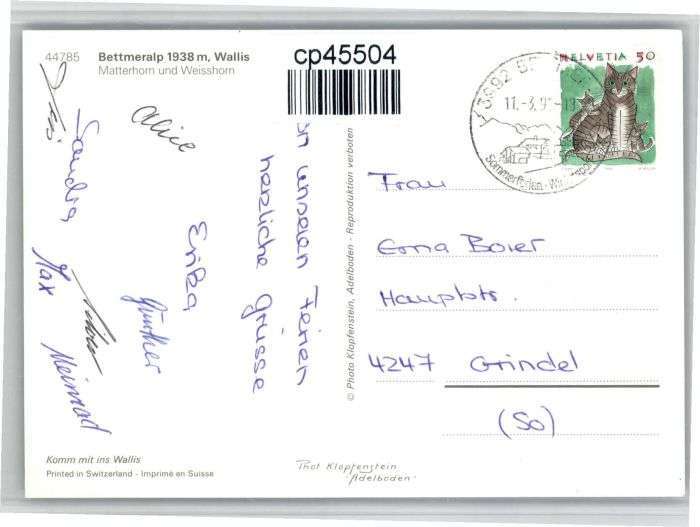 44785 Bettmeralp 1938 m, Wallis
Matterhorn und Weisshorn
cp45504
HELVETIA 50
3992
11.-3.9
Sommerferien - Wi
Alice
Sandra
Max
Erika
Günther
Meinrad
unseren Ferien
herzliche Grüsse
© Photo Klopfenstein, Adelboden - Reproduktion verboten
Frau
Erna Borer
Hauptstr.
4247 Grindel
(So)
Komm mit ins Wallis
Printed in Switzerland - Imprimé en Suisse
Phot Klopfenstein
Adelboden